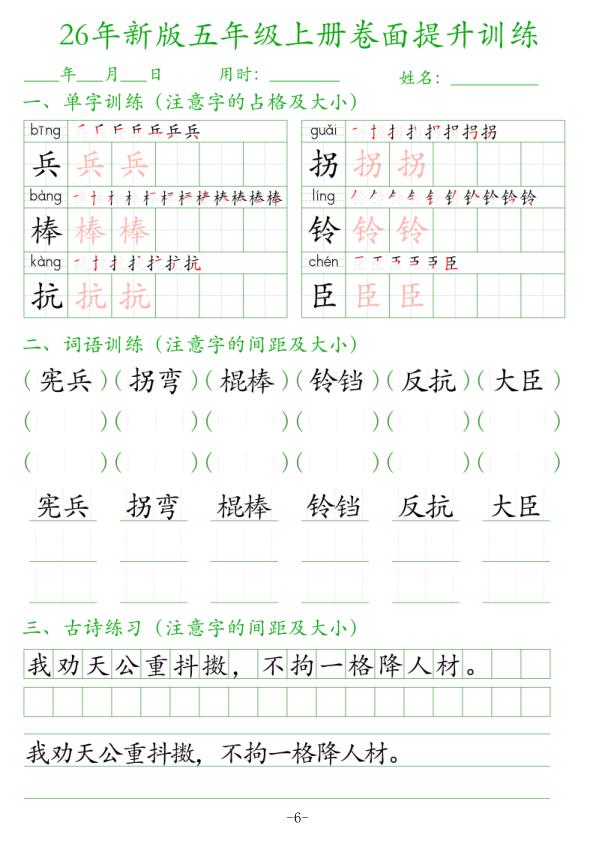 26年新版五年级上册卷面提升训练
____年___月___日 用时：________ 姓名：__________
一、单字训练（注意字的占格及大小）
bīng guǎi
兵 兵 兵 拐 拐 拐
bàng líng
棒 棒 棒 铃 铃 铃
kàng chén
抗 抗 抗 臣 臣 臣
二、词语训练（注意字的间距及大小）
（宪兵）（拐弯）（棍棒）（铃铛）（反抗）（大臣）
（ ）（ ）（ ）（ ）（ ）（ ）
（ ）（ ）（ ）（ ）（ ）（ ）
宪兵 拐弯 棍棒 铃铛 反抗 大臣
三、古诗练习（注意字的间距及大小）
我劝天公重抖擞，不拘一格降人材。
我劝天公重抖擞，不拘一格降人材。
-6-